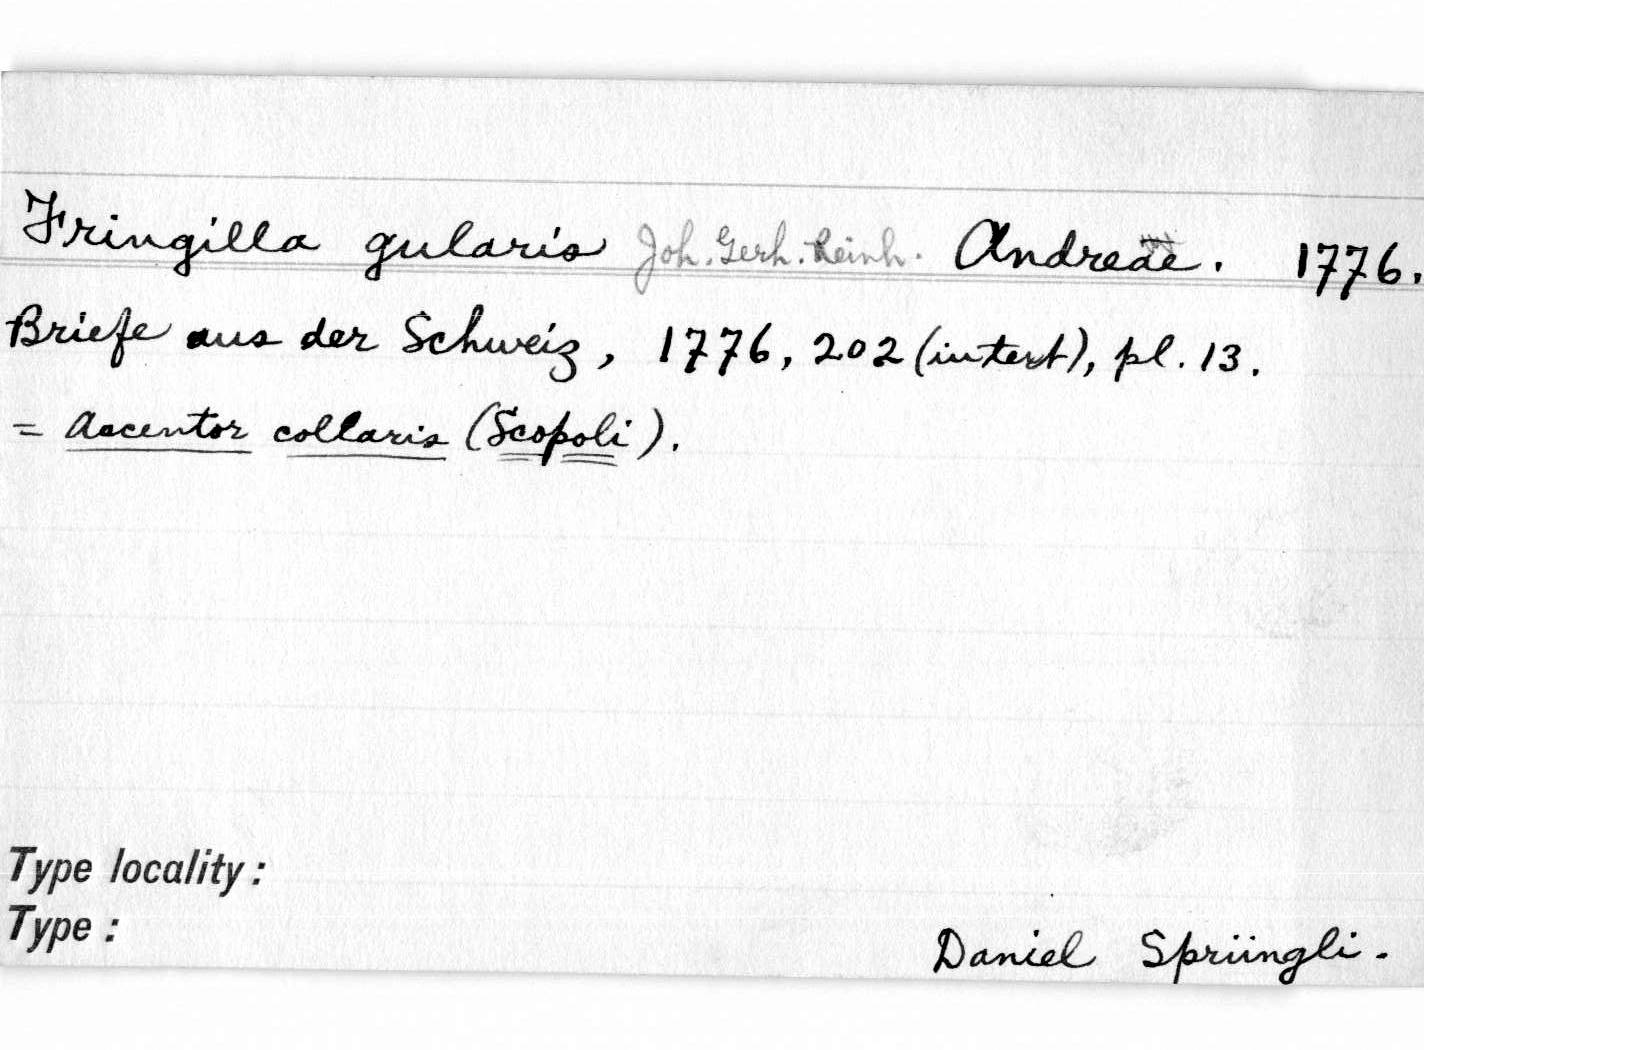 Fringilla gularis Joh. Gerh. Reinh. Andreae. 1776.
Briefe aus der Schweiz, 1776, 202 (in text), pl. 13.
= Accentor collaris (Scopoli).
Type locality :
Type :
Daniel Sprüngli.